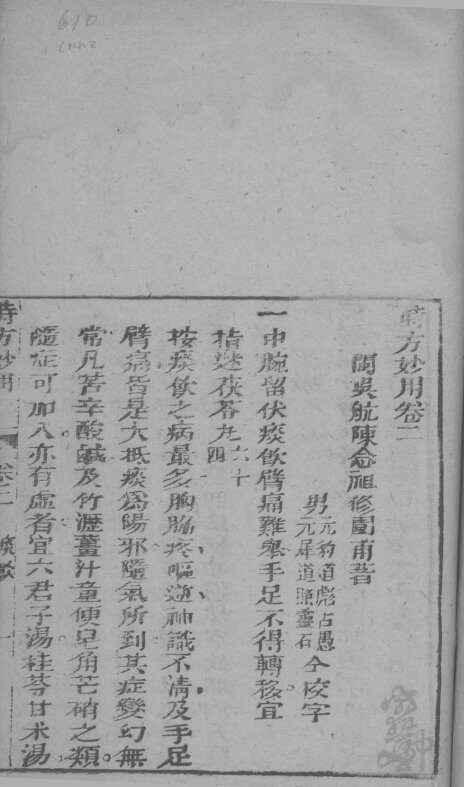 610
時方妙用卷二
閩吳航陳念祖修園甫著
男元豹道彪占愚
元犀道照靈石
仝校字
一中腕留伏痰飲臂痛難舉手足不得轉移宜
指迷茯苓丸六十
四
按痰飲之病最多胸脇疼嘔逆神識不清及手足
臂痛皆是大抵痰爲陽邪隨氣所到其症變幻無
常凡苦辛酸鹹及竹瀝薑汁童便皂角芒硝之類
隨症可加入亦有虛者宜六君子湯桂苓甘朮湯
時方妙用
卷二
痰飲